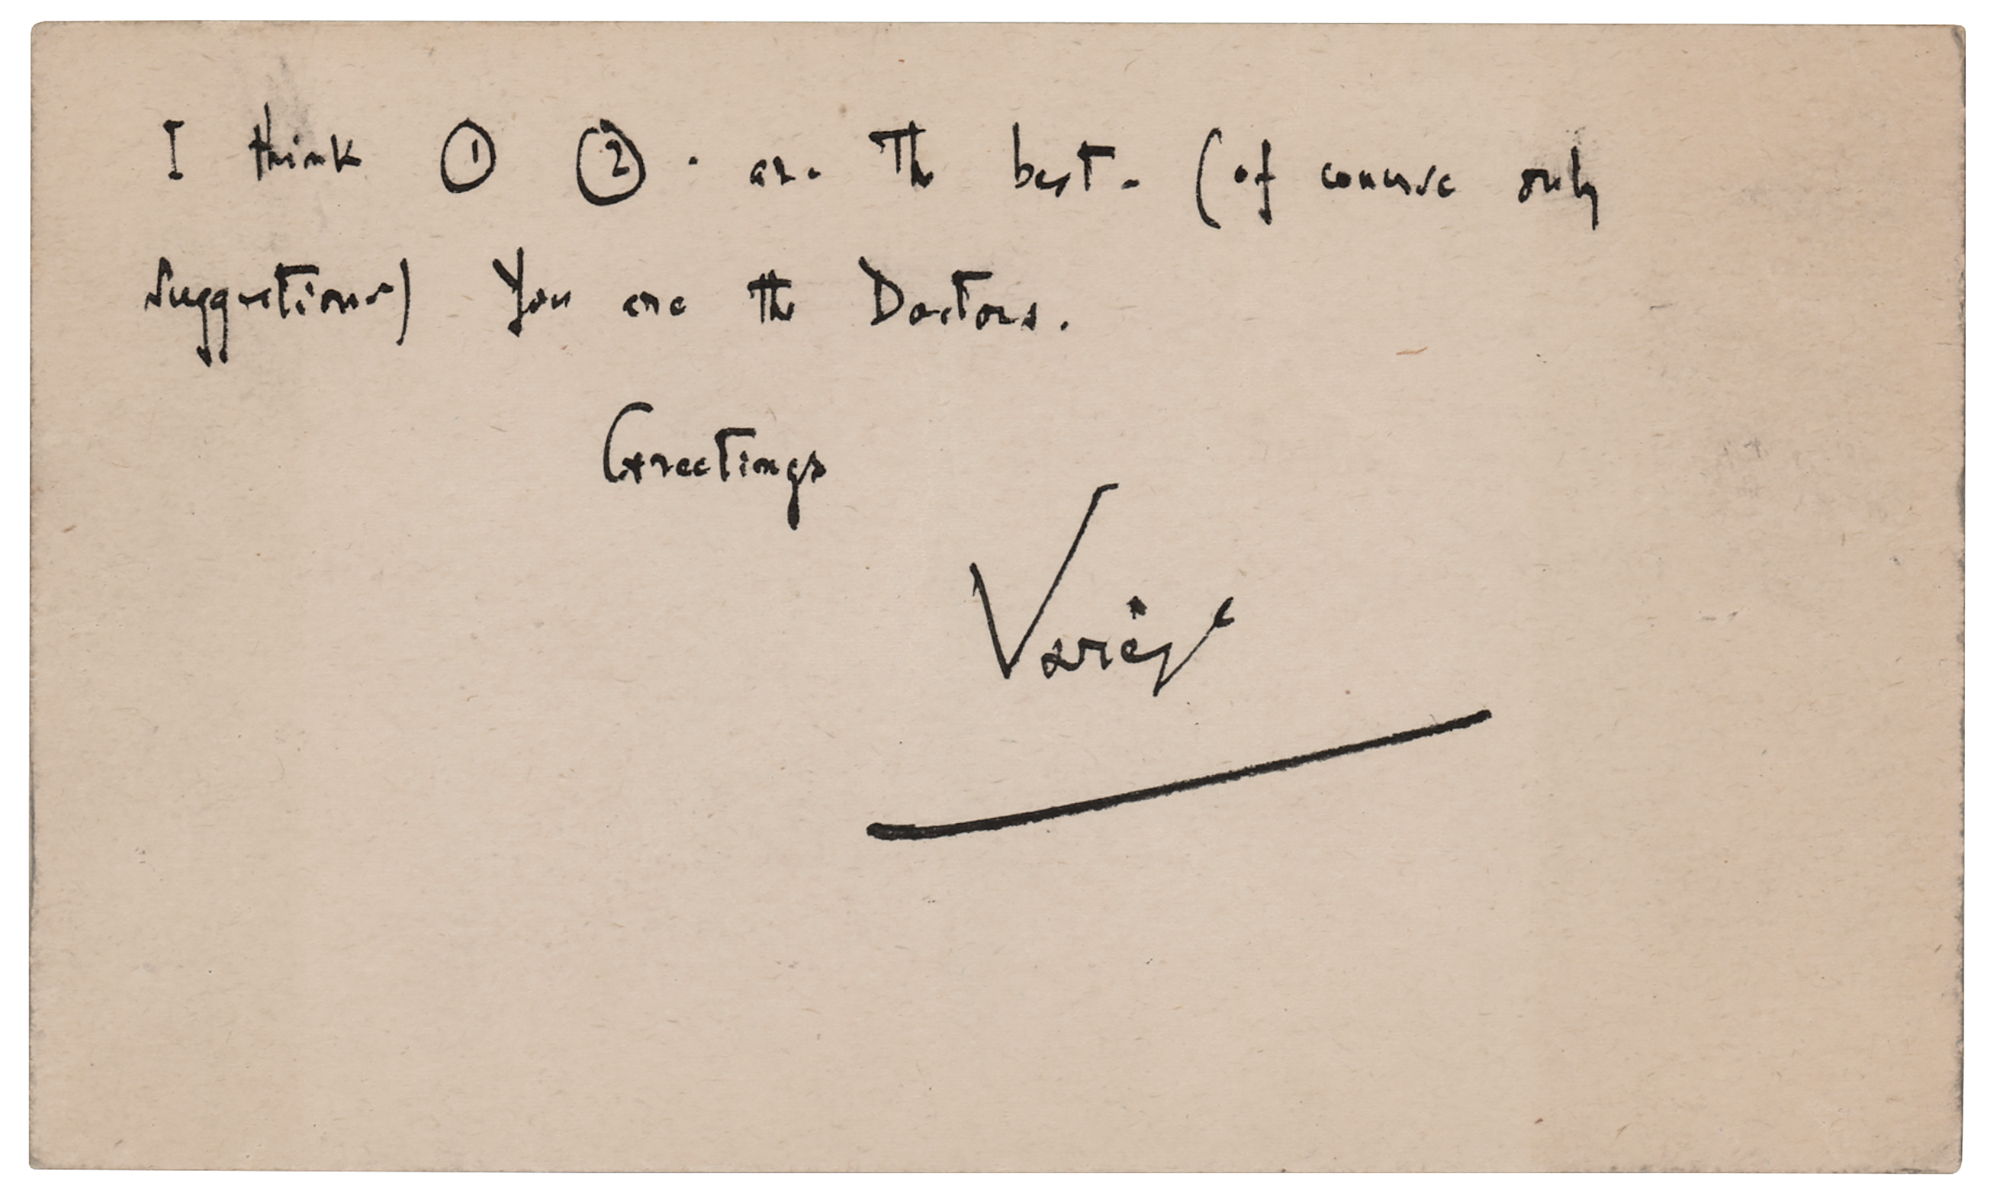 I think ① ② . are the best. (of course only
suggestions) You are the Doctors.
Greetings
Varèse